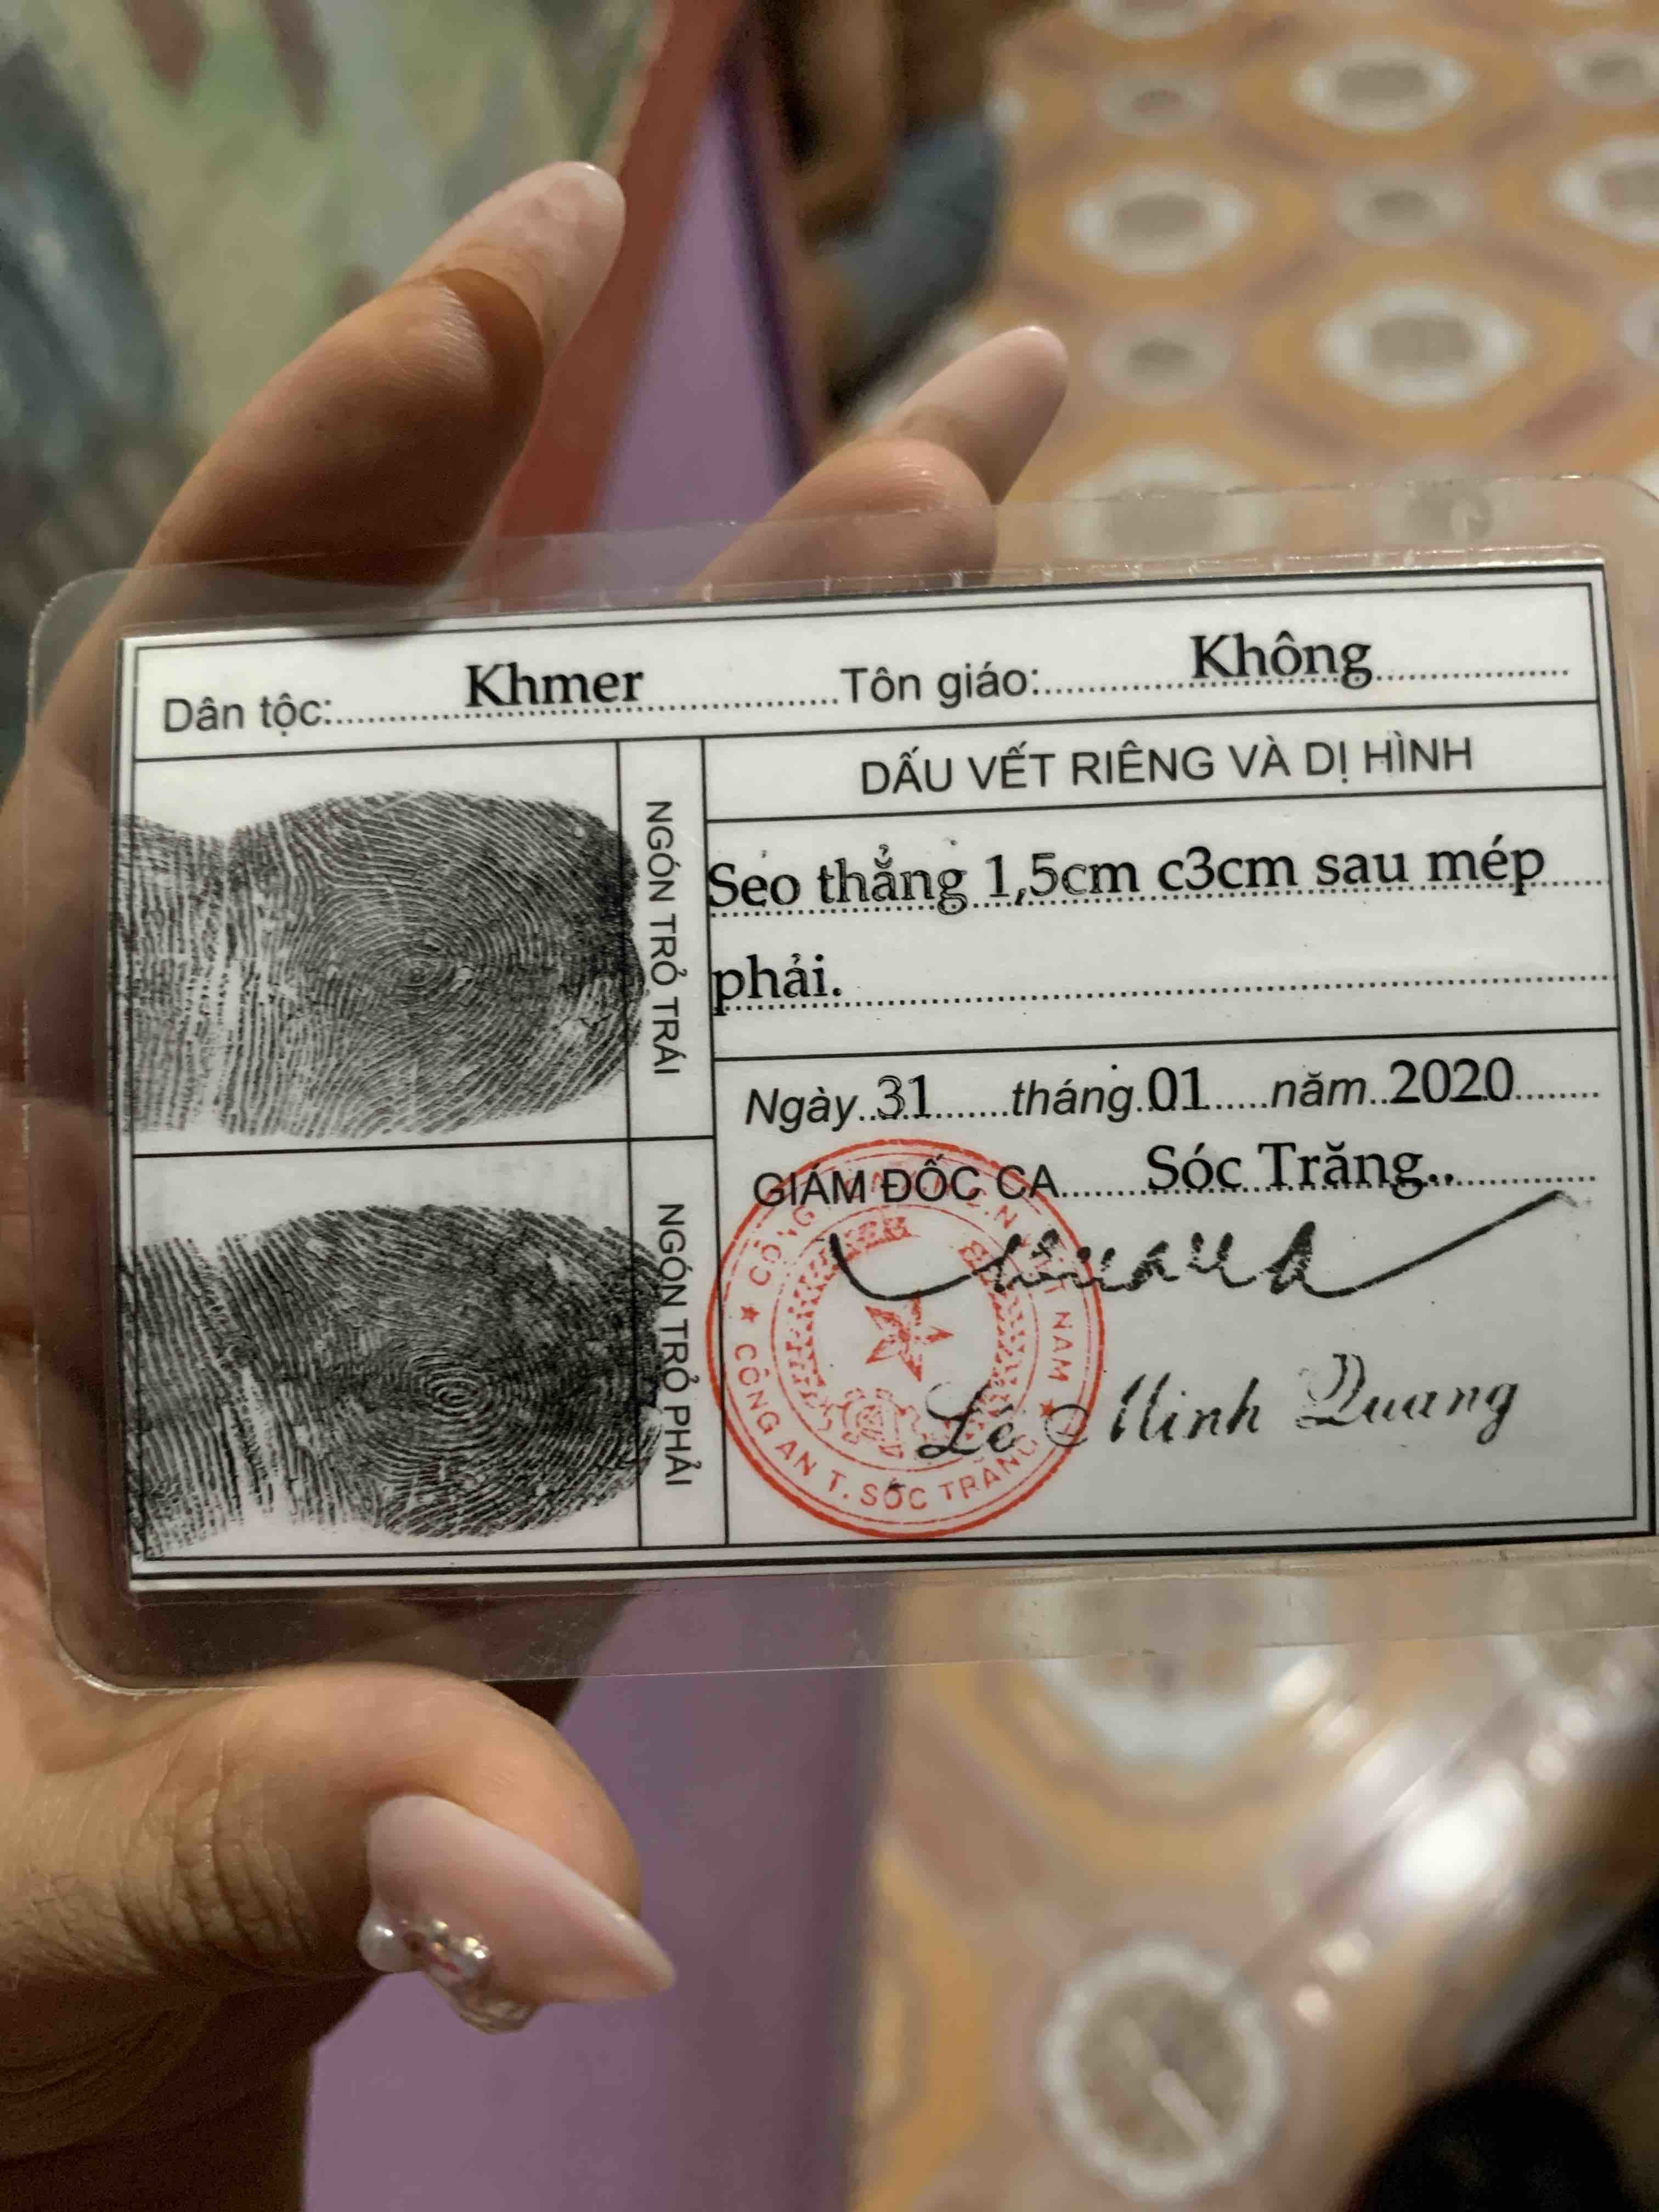 Dân tộc: Khmer Tôn giáo: Không
DẤU VẾT RIÊNG VÀ DỊ HÌNH
NGÓN TRỎ TRÁI
Sẹo thẳng 1,5cm c3cm sau mép
phải.
Ngày 31 tháng 01 năm 2020
GIÁM ĐỐC CA Sóc Trăng
NGÓN TRỎ PHẢI
CÔNG AN T. SÓC TRĂNG
Lê Minh Quang